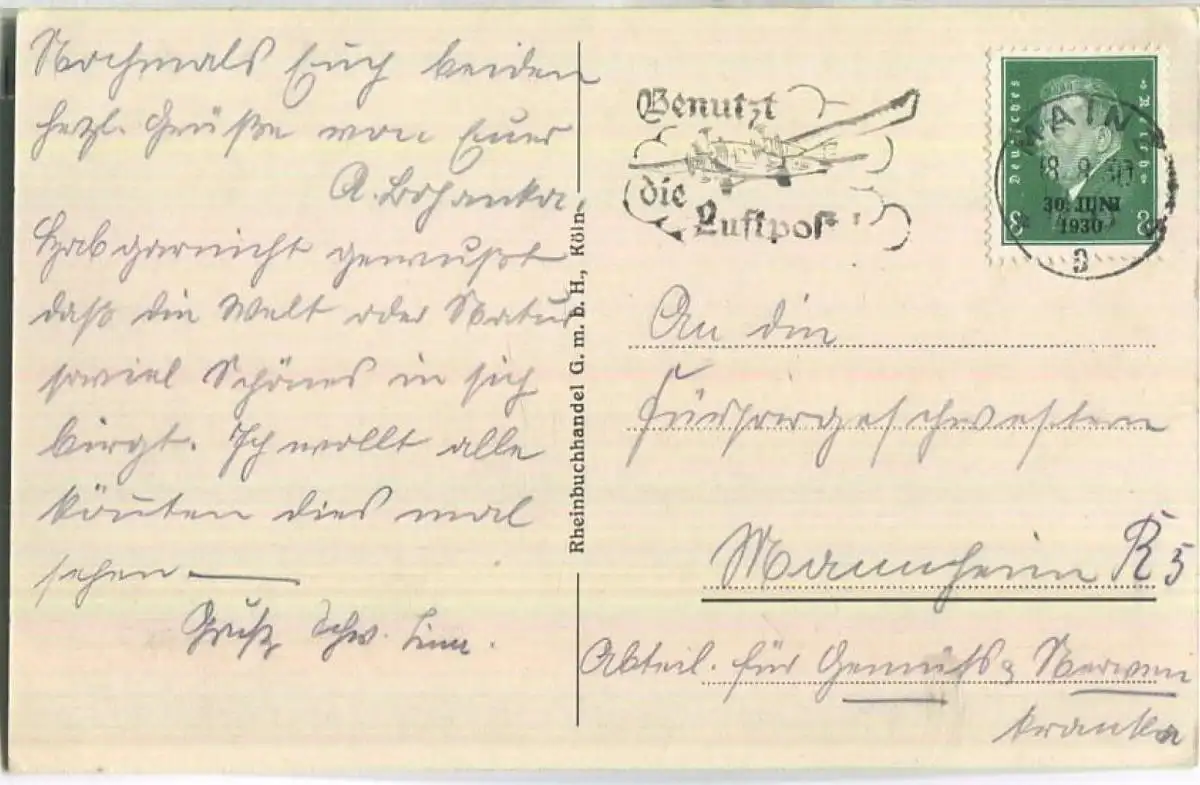 Nochmals Euch beiden
herzl. Grüße von Euer
A. Bohanka.
Hab garnicht gewußt
daß die Welt oder Natur
soviel Schönes in sich
birgt. Ich wollt alle
könnten dies mal
sehen
Gruß, Schw. Linn.
Rheinbuchhandel G. m. b. H., Köln
Benutzt
die
Luftpost
Deutsches Reich
MAINZ
18.8.30
30. JUNI
1930
8 8
An die
Fürsorgeschwestern
Mannheim R 5
Abteil. für Gemüts & Nerven
kranke